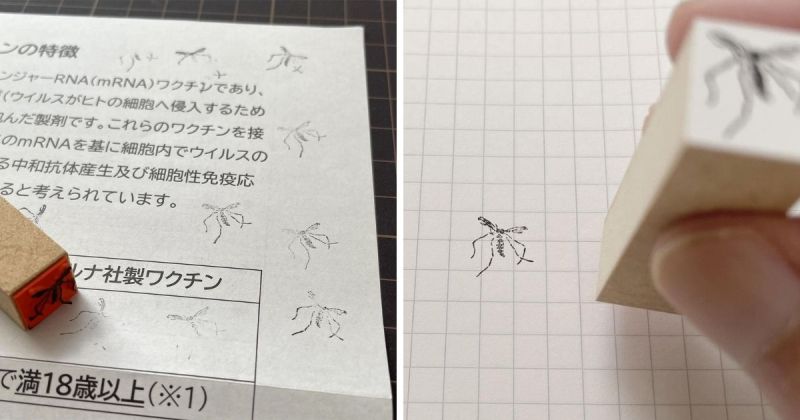 ンの特徴
ンジャーRNA(mRNA)ワクチンであり、
(ウイルスがヒトの細胞へ侵入するため
んだ製剤です。これらのワクチンを接
のmRNAを基に細胞内でウイルスの
る中和抗体産生及び細胞性免疫応
ると考えられています。
ルナ社製ワクチン
で満18歳以上(※1)